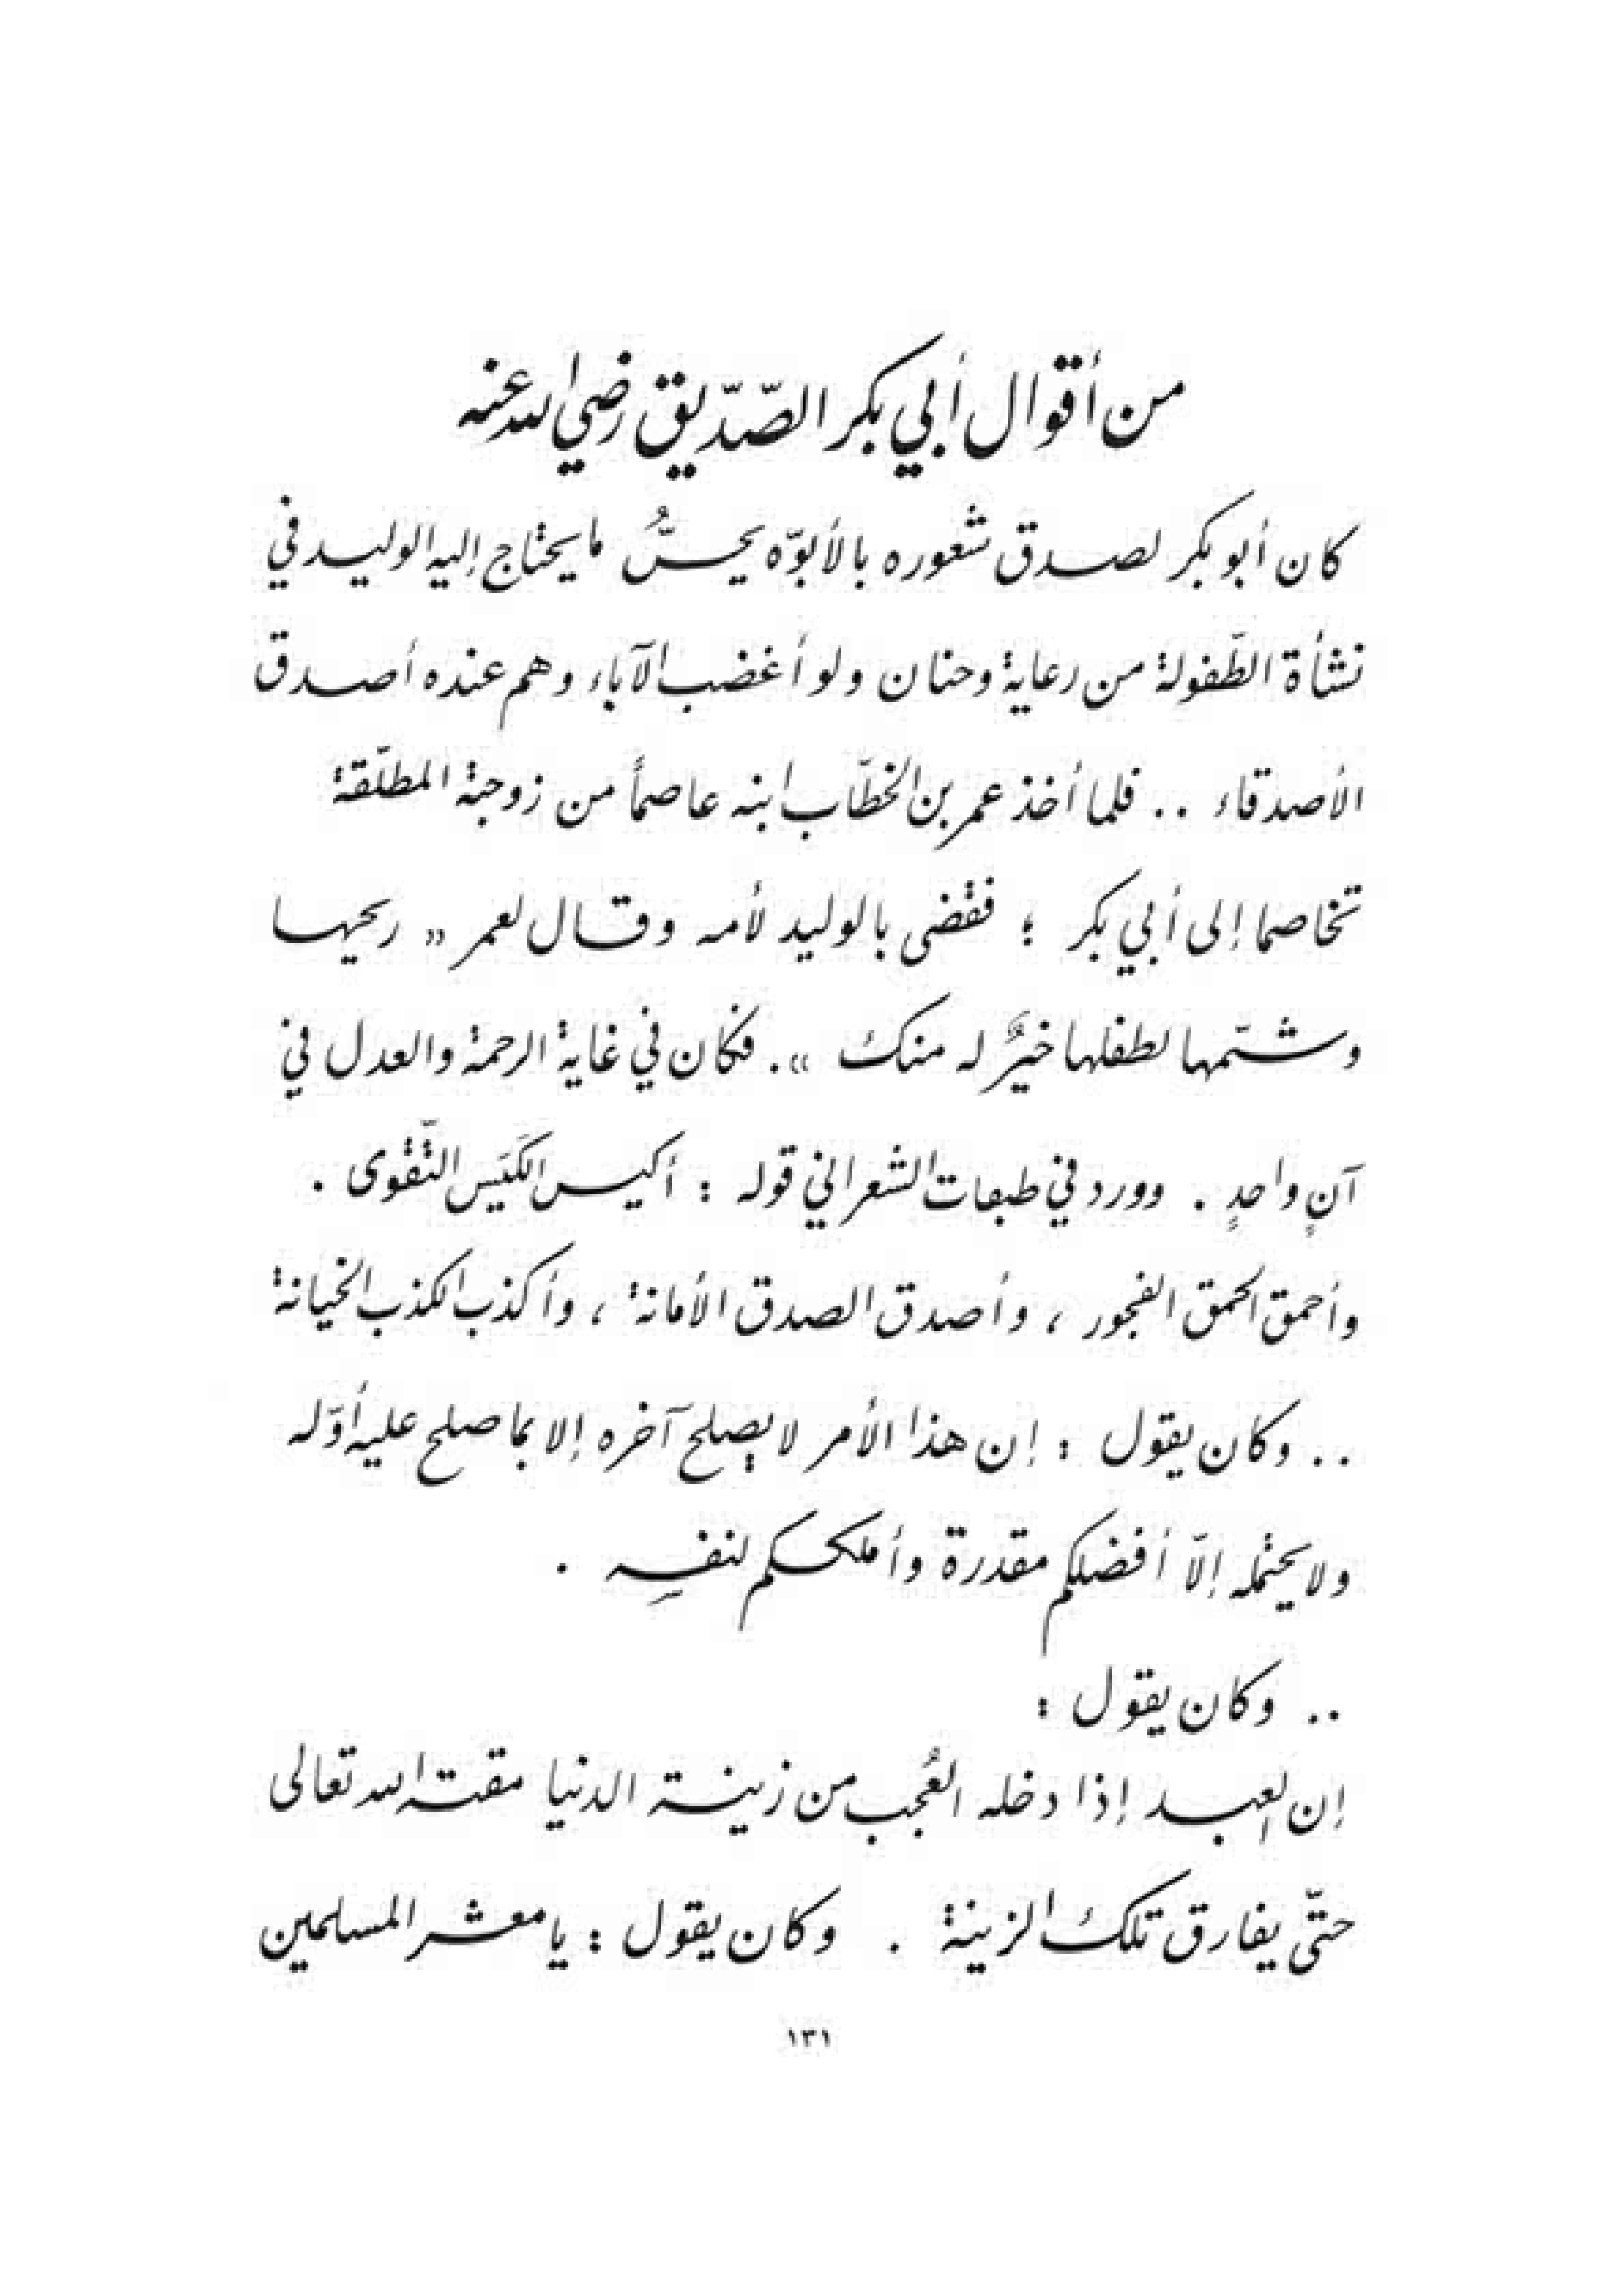 من أقوال أبي بكر الصّدّيق رضي الله عنه
كان أبو بكر لصدق شعوره بالأبوّه يحسُّ ما يحتاج إليه الوليد في
نشأة الطّفولة من رعاية وحنان ولو أغضب الآباء وهم عنده أصدق
الأصدقاء .. فلما أخذ عمر بن الخطّاب ابنه عاصماً من زوجة المطلّقة
تخاصما إلى أبي بكر ؛ فقضى بالوليد لأمه وقال لعمر « ريحها
وشمّها لطفلها خيرٌ له منك ». فكان في غاية الرحمة والعدل في
آنٍ واحدٍ . وورد في طبقات الشعراني قوله : أكيس الكَيَس التّقوى .
وأحمق الحمق الفجور ، وأصدق الصدق الأمانة ، وأكذب الكذب الخيانة
.. وكان يقول : إن هذا الأمر لا يصلح آخره إلا بما صلح عليه أوّله
ولا يحتمله إلّا أفضلكم مقدرة وأملككم لنفسِه .
.. وكان يقول :
إن العبد إذا دخله العُجب من زينة الدنيا مقته الله تعالى
حتّى يفارق تلك الزينة . وكان يقول : يا معشر المسلمين
١٣١